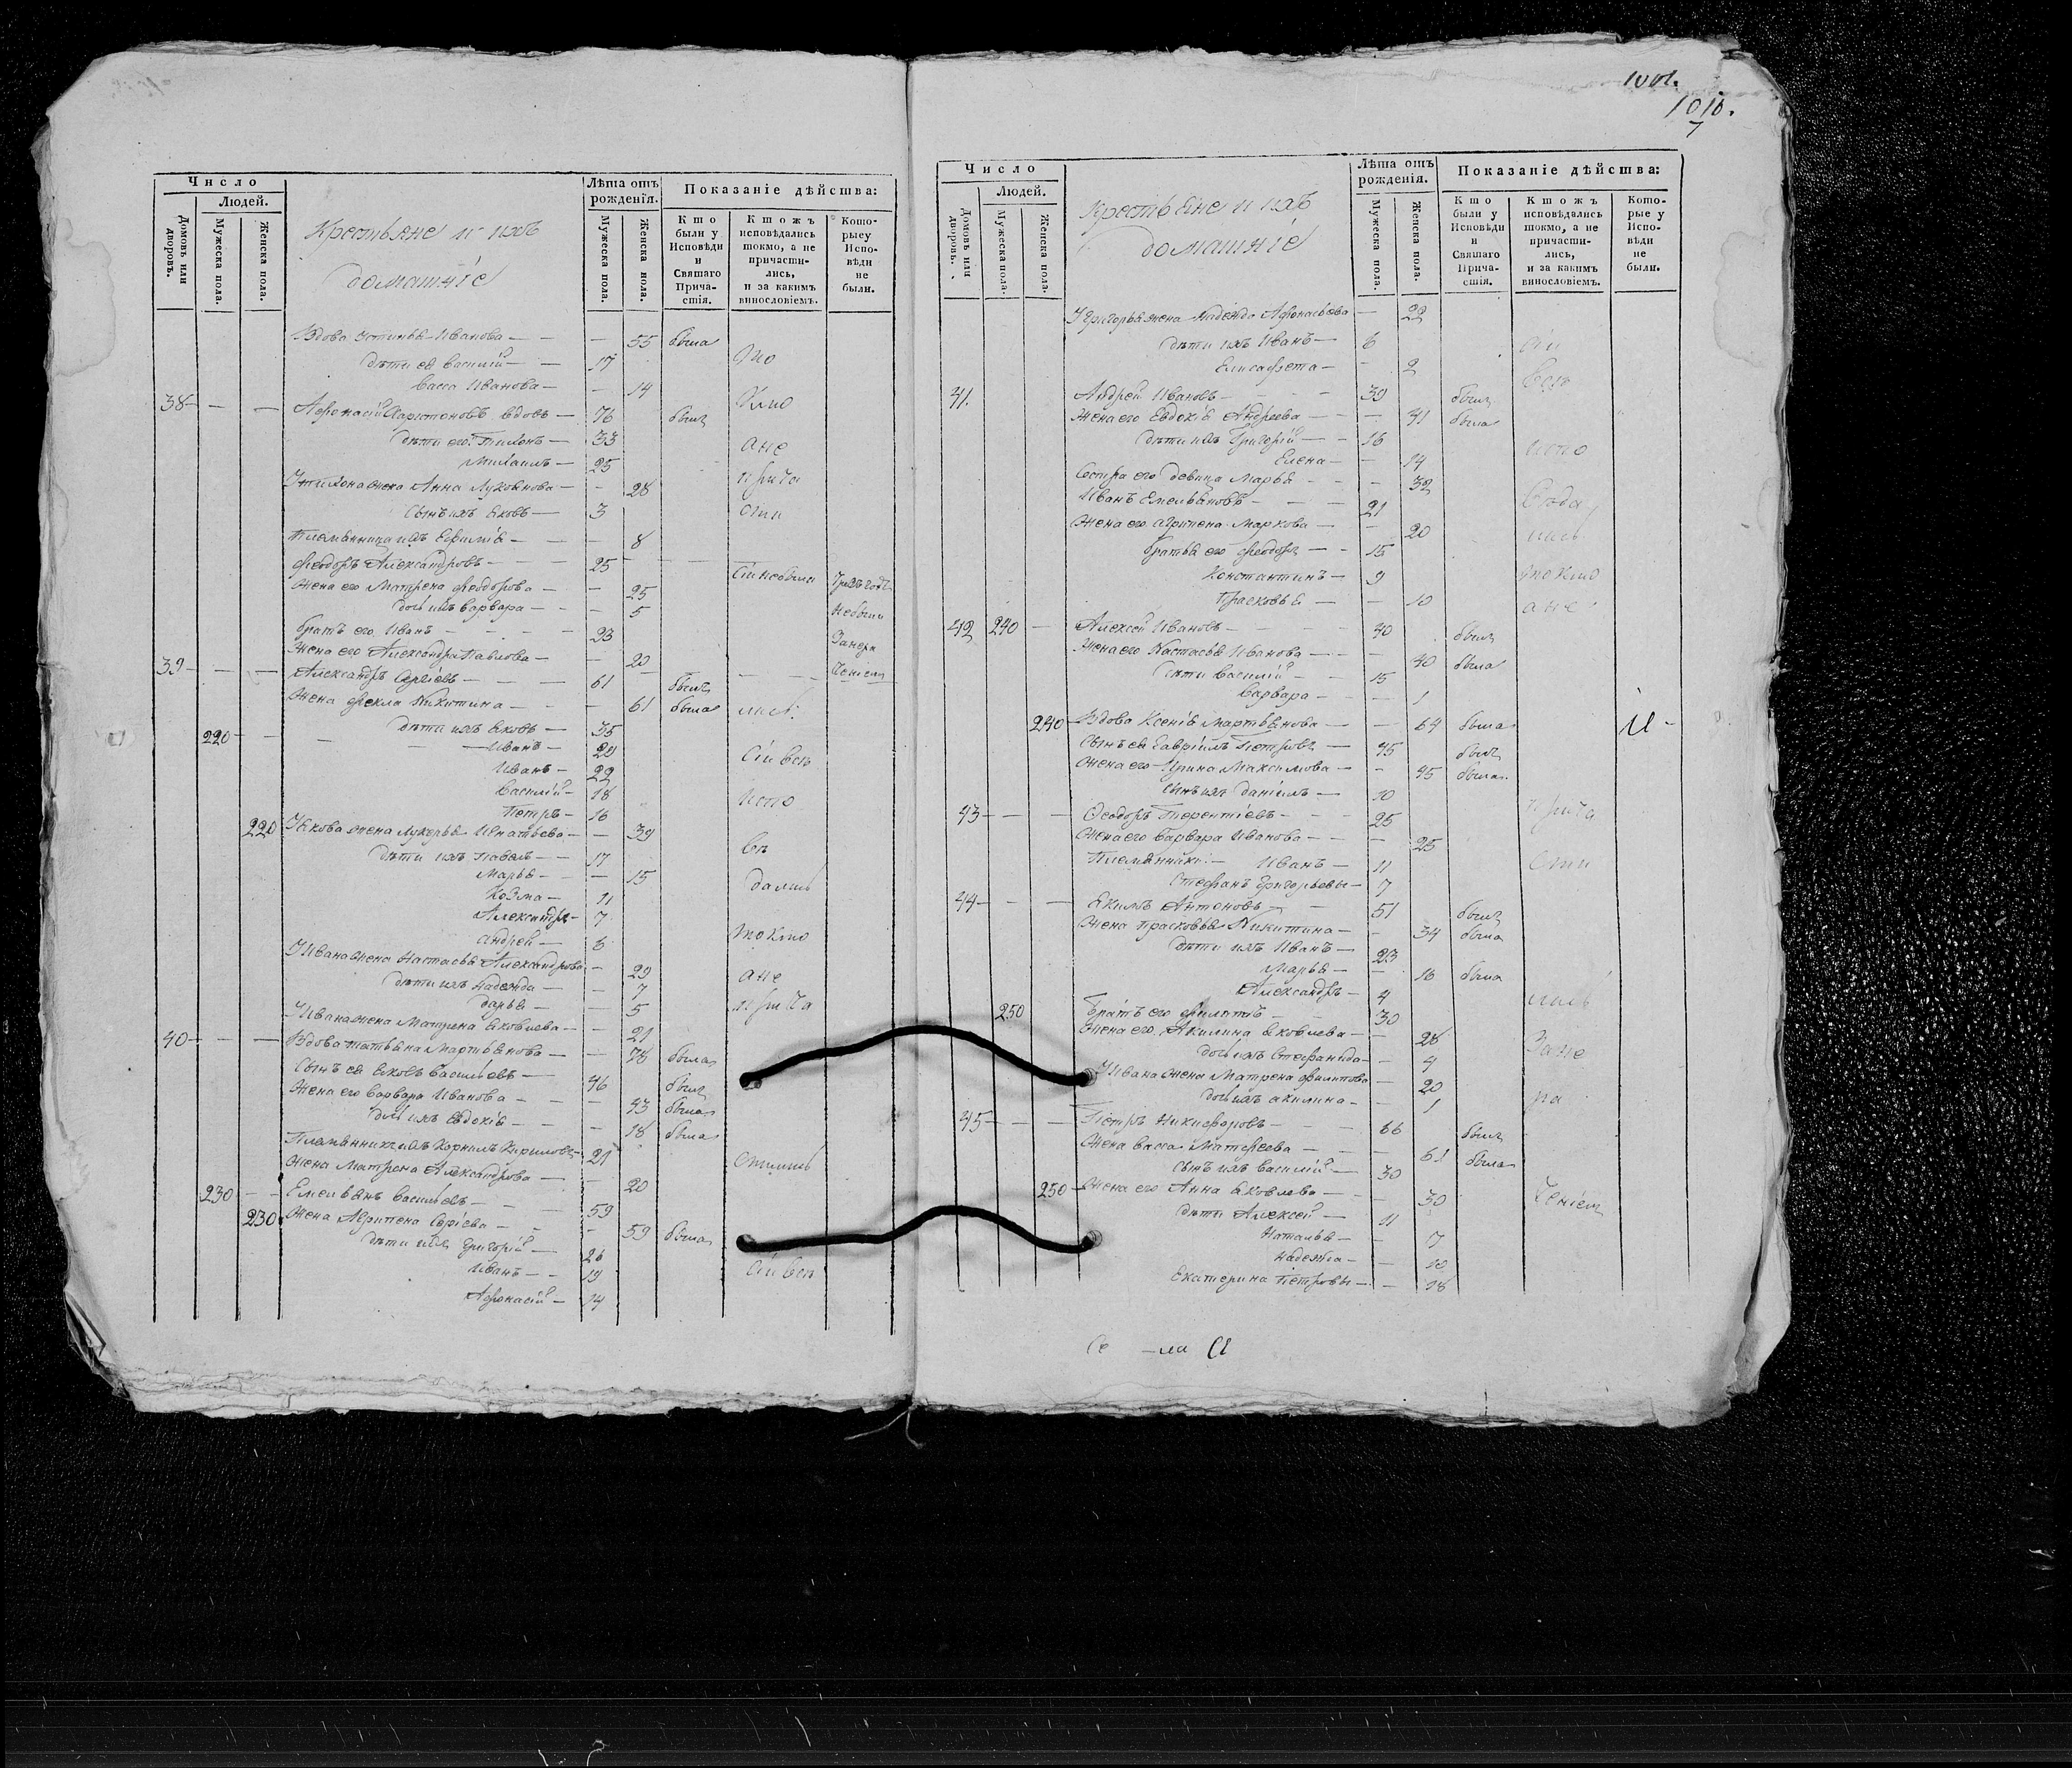 Число
Людей.
Домовъ или дворовъ.
Мужеска пола.
Женска пола.
Крестьяне и ихъ
домашніе
Лѣта отъ рожденія.
Мужеска пола.
Женска пола.
Показаніе дѣйства:
Кто были у Исповѣди и Святаго Причастія.
Ктожъ исповѣдались токмо, а не причастились, и за какимъ винословіемъ.
Которые у Исповѣди не были.
Вдова Устинья Иванова — 55 была
дѣти ея Василій — 17
Васса Иванова — 14
38 — Афонасій Харитоновъ вдовъ — 76 былъ
дѣти его Тихонъ — 33
Михаилъ — 25
У Тихона жена Анна Лукоянова — 28
Сынъ ихъ Яковъ — 3
Племянница ихъ Ефимія — 8
Феодоръ Александровъ — 25
Жена его Матрена Феодорова — 25
дочь ихъ Варвара — 5
братъ его Иванъ — 23
Жена его Александра Павлова — 20
39 — Александръ Сергіевъ — 61 былъ
Жена Фекла Никитина — 61 была
дѣти ихъ Яковъ — 35
220 — Иванъ —
Иванъ — 22
Василій — 18
Петръ — 16
220 У Якова жена Лукерья Игнатьева — 39
дѣти ихъ Павелъ — 17
Марья — 15
Козма — 11
Александръ — 7
Андрей —
У Ивана жена Настасья Александрова — 29
дѣти ихъ Надежда — 7
Дарья — 5
У Ивана жена Матрена Яковлева — 21
40 — Вдова Татьяна Мартьянова — 78 была
Сынъ ея Яковъ Васильевъ — 46 былъ
Жена его Варвара Иванова — 43 была
дочь ихъ Евдокія — 18 была
Племянникъ ихъ Корнилъ Кириловъ — 21
Жена Матрена Александрова — 20
230 — Емельянъ Васильевъ — 59
230 Жена Агрипена Сергіева — 59 была
дѣти ихъ Григорій — 26
Иванъ — 19
Афонасій — 14
1010.
7
Число
Людей.
Домовъ или дворовъ.
Мужеска пола.
Женска пола.
Крестьяне и ихъ
домашніе
Лѣта отъ рожденія.
Мужеска пола.
Женска пола.
Показаніе дѣйства:
Кто были у Исповѣди и Святаго Причастія.
Ктожъ исповѣдались токмо, а не причастились, и за какимъ винословіемъ.
Которые у Исповѣди не были.
У Григорья жена Надежда Афонасьева — 22
дѣти ихъ Иванъ — 6
Елисафета — 2
41. Андрей Ивановъ — 39 былъ
Жена его Евдокія Андреева — 41 была
дѣти ихъ Григорій — 16
Елена — 14
Сестра его девица Марья — 32
Иванъ Емельяновъ — 21
Жена его Агрипена Маркова — 20
братья его Феодоръ — 15
Константинъ — 9
Прасковья — 10
42 240 — Алексей Ивановъ — 40 былъ
Жена его Настасья Иванова — 40 была
дѣти Василій — 15
Варвара — 1
240 Вдова Ксенія Мартьянова — 64 была
Сынъ ея Гавріилъ Петровъ — 45 былъ
Жена его Ирина Максимова — 45 была
Сынъ ихъ Даніилъ — 10
43 — Феодоръ Терентіевъ — 25
Жена его Варвара Иванова — 25
Племянники Иванъ — 11
Стефанъ Григорьевы — 7
44 — Якимъ Антоновъ — 51 былъ
Жена Прасковья Никитина — 54 была
дѣти ихъ Иванъ — 23
Марья — 16 была
Александръ — 4
250 Братъ его Филиппъ — 30
Жена его Акилина Яковлева — 28
дочь ихъ Стефанида — 4
У Ивана жена Матрена Филипова — 20
дочь ихъ Акилина — 1
45 — Петръ Никифоровъ — 66 былъ
Жена Васса Матфеева — 61 была
Сынъ ихъ Василій — 30
250 Жена его Анна Яковлева — 30
дѣти Алексей — 11
Наталья — 7
Надежда — 10
Екатерина Петровы — 18